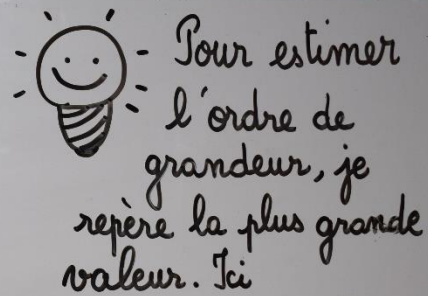 Pour estimer
l'ordre de
grandeur, je
repère la plus grande
valeur. Ici